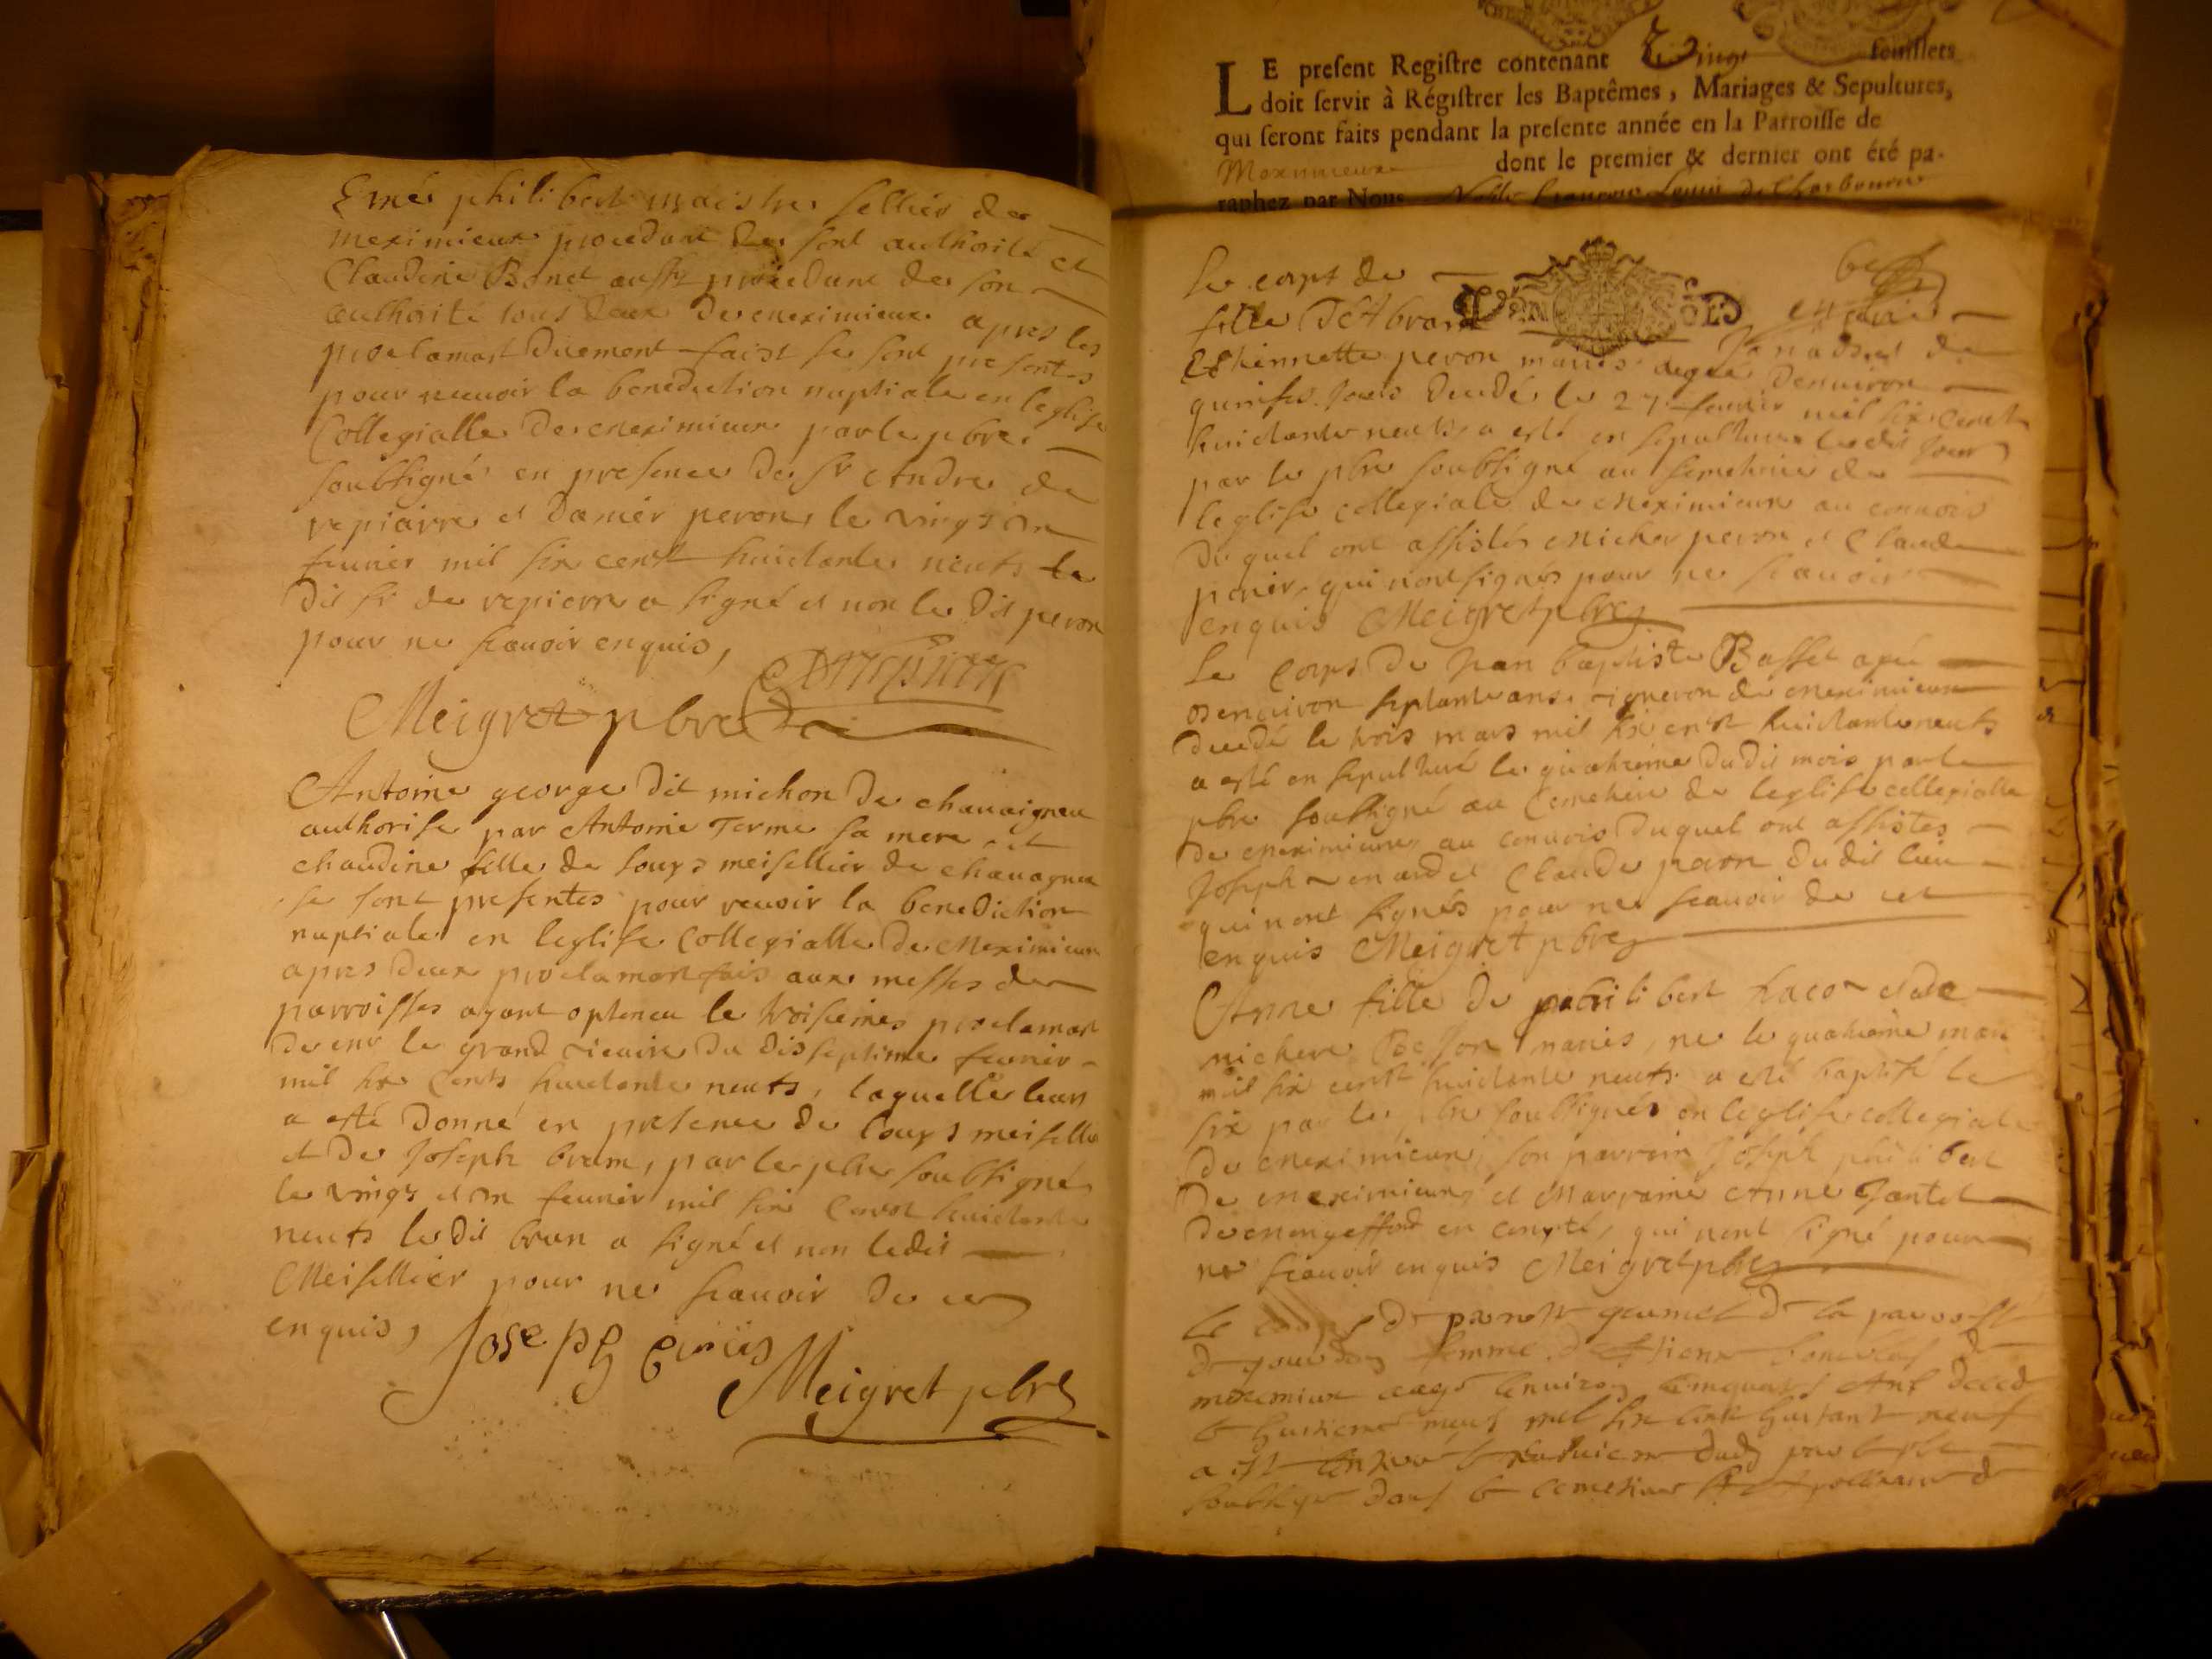 Emé philibert maistre sellier de
meximieux procedant de sont authorité et
Claudine Bonet aussy procedant de son
authorité tous deux de meximieux apres les
proclamaôn duement faict se sont presentes
pour recevoir la benediction nuptiale en leglise
Collegialle de meximieux par le pbre
soubsigné en presence de sr Andre de
repiarre et Damier peron, le vingt un
feuvrier mil six cent huictante neufs le
dit sr de repierre a signé et non le dit peron
pour ne scavoir enquis,
Meigret pbre
Antoine george dit michon de chavaigneu
authorise par Antoine Terme sa mere et
chaudine fille de Louys meisellier de chavagneu
se sont presentes pour revoir la benediction
nuptiale en leglise Collegialle de meximieux
apres deux proclamaôn fais aux messes de
parroisses ayant opteneu le troisieme proclamaôn
de mr le grand vicaire du disseptime feuvrier
mil six cents huictante neufs, laquelle leurs
a esté donné en presence de Louys meisellie
et de Joseph brun, par le pbre soubsigné
le vingt et un feuvrier mil six cent huictante
neufs le dit brun a signé et non ledit
Meisellier pour ne scavoir de ce
enquis,
Joseph
Meigret pbre
LE present Registre contenant Vingt feuillets
doit servir à Régistrer les Baptêmes, Mariages & Sepultures,
qui seront faits pendant la presente année en la Parroisse de
Meximieux dont le premier & dernier ont été pa-
raphez par Nous Noble
Le corps de
fille
Ethiennette peron maries agée denviron
quinse jours decedé le 27 feuvrier mil six cent
huictante neufs, a esté en sepulturé le dit jour
par le pbre soubsigné au semetiere de
leglise collegiale de meximieux au convois
du quel ont assistés michel peron et Claude
perier, qui nont signés pour ne scavoir
enquis Meigret pbre
Le Corps de Jean baptiste Basset agée
denviron septante ans vigneron de meximieux
decedé le trois mars mil six cent huictante neufs
a esté en sepulturé le quatrieme du dit mois par le
pbre soubsigné au Cemetiere de leglise collegialle
de meximieux au convois duquel ont assistes
Joseph venard et Claude peron dudit lieu
qui nont signés pour ne scavoir de cet
enquis Meigret pbre
Anne fille de philibert et de
michere Besson maries, ne le quatrieme mars
mil six cent huictante neufs a esté baptisé le
six par le pbre soubsignés en leglise collegiale
de meximieux, son parrain Joseph philibert
de meximieux et Marraine Anne Jantet
en comté, qui nont signé pour
ne scavoir enquis Meigret pbre
le corps de de la paroisse
de femme de de
meximieux eagé denviron cinquante Ans decedé
le huitieme mars mil six cent huitante neuf
a esté dud par le pbre
soubsigné dans le cemetiere St Apollinaire de